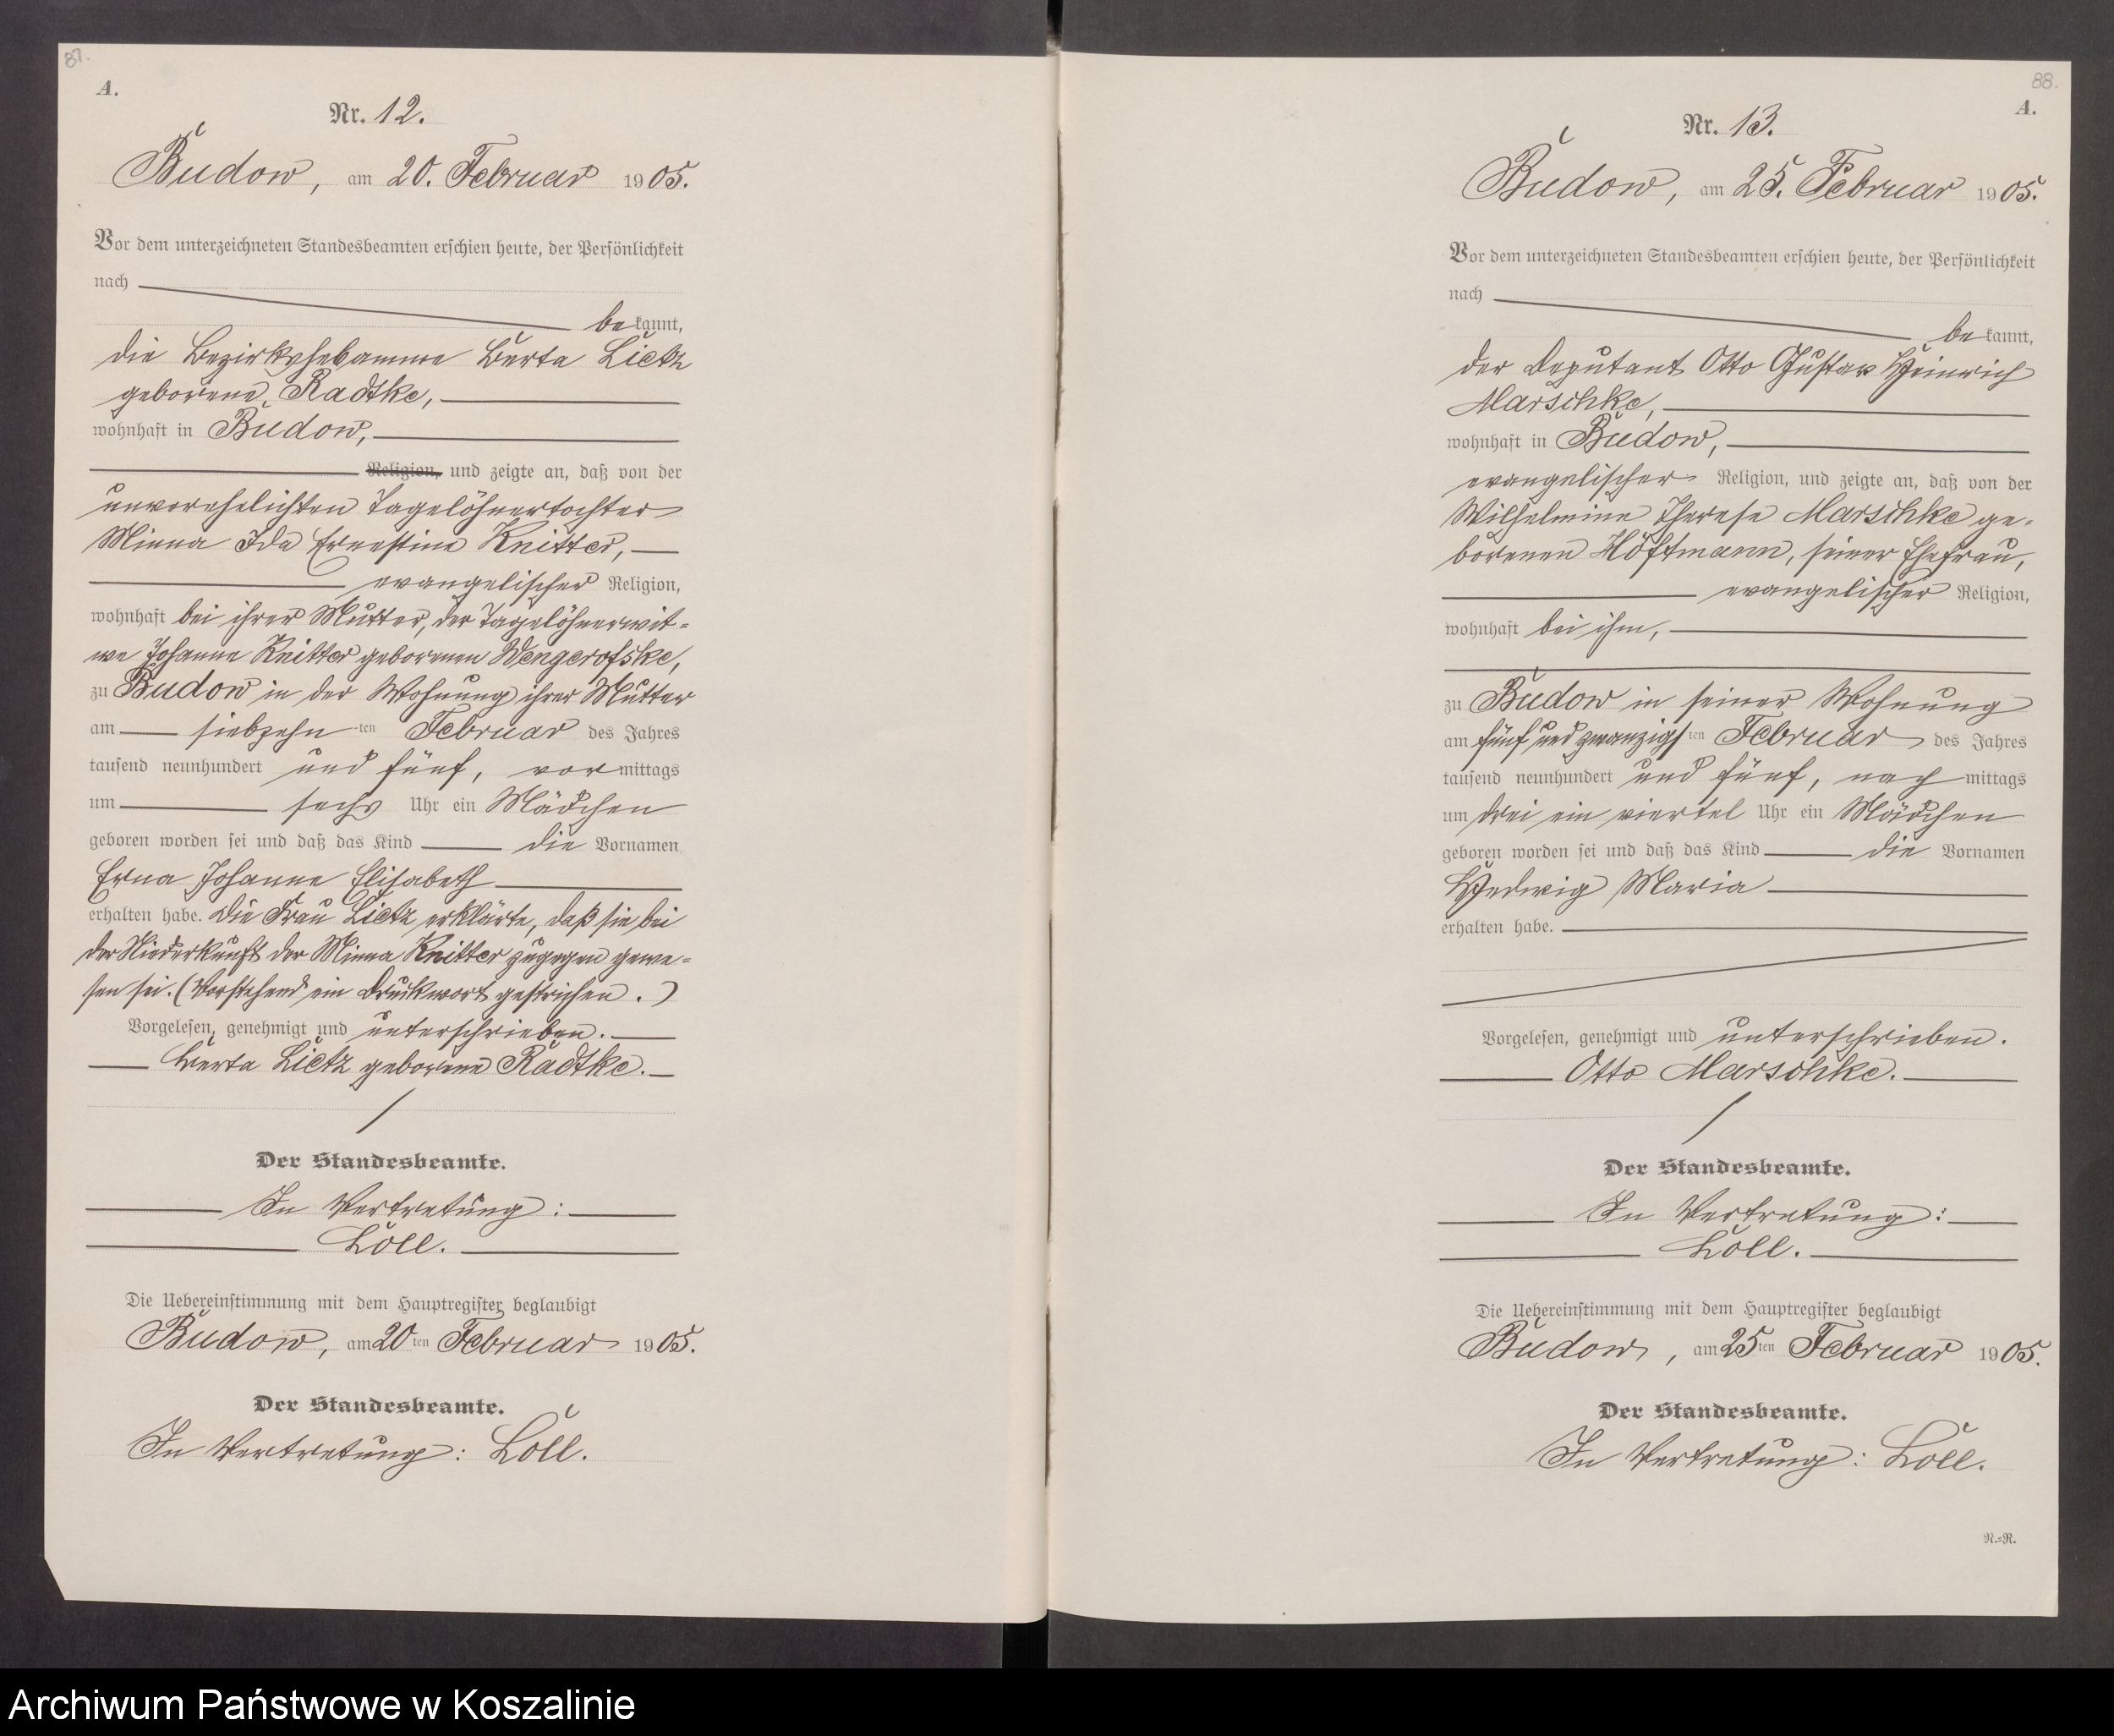 87.
A.
Nr. 12.
Budow, am 20. Februar 1905.
Vor dem unterzeichneten Standesbeamten erschien heute, der Persönlichkeit
nach
bekannt,
die Bezirkshebamme Berta Lietz
geborene Radtke,
wohnhaft in Budow,
Religion, und zeigte an, daß von der
unverehelichten Tagelöhnertochter
Minna Ida Ernestine Knitter,
evangelischer Religion,
wohnhaft bei ihrer Mutter, der Tagelöhnerwit-
we Johanne Knitter geborenen Wengerofske,
zu Budow in der Wohnung ihrer Mutter
am siebzehnten Februar des Jahres
tausend neunhundert und fünf, vormittags
um sechs Uhr ein Mädchen
geboren worden sei und daß das Kind die Vornamen
Erna Johanne Elisabeth
erhalten habe. Die Frau Lietz erklärte, daß sie bei
der Niederkunft der Minna Knitter zugegen gewe-
sen sei. (Vorstehend ein Druckwort gestrichen.)
Vorgelesen, genehmigt und unterschrieben.
Berta Lietz geborene Radtke.
Der Standesbeamte.
In Vertretung:
Loll.
Die Uebereinstimmung mit dem Hauptregister beglaubigt
Budow, am 20ten Februar 1905.
Der Standesbeamte.
In Vertretung: Loll.
88.
A.
Nr. 13.
Budow, am 25. Februar 1905.
Vor dem unterzeichneten Standesbeamten erschien heute, der Persönlichkeit
nach
bekannt,
der Deputant Otto Gustav Heinrich
Marschke,
wohnhaft in Budow,
evangelischer Religion, und zeigte an, daß von der
Wilhelmine Therese Marschke ge-
borenen Höftmann, seiner Ehefrau,
evangelischer Religion,
wohnhaft bei ihm,
zu Budow in seiner Wohnung
am fünf und zwanzigsten Februar des Jahres
tausend neunhundert und fünf, nachmittags
um drei ein viertel Uhr ein Mädchen
geboren worden sei und daß das Kind die Vornamen
Hedwig Maria
erhalten habe.
Vorgelesen, genehmigt und unterschrieben.
Otto Marschke.
Der Standesbeamte.
In Vertretung:
Loll.
Die Uebereinstimmung mit dem Hauptregister beglaubigt
Budow, am 25ten Februar 1905.
Der Standesbeamte.
In Vertretung: Loll.
N.=R.
Archiwum Państwowe w Koszalinie